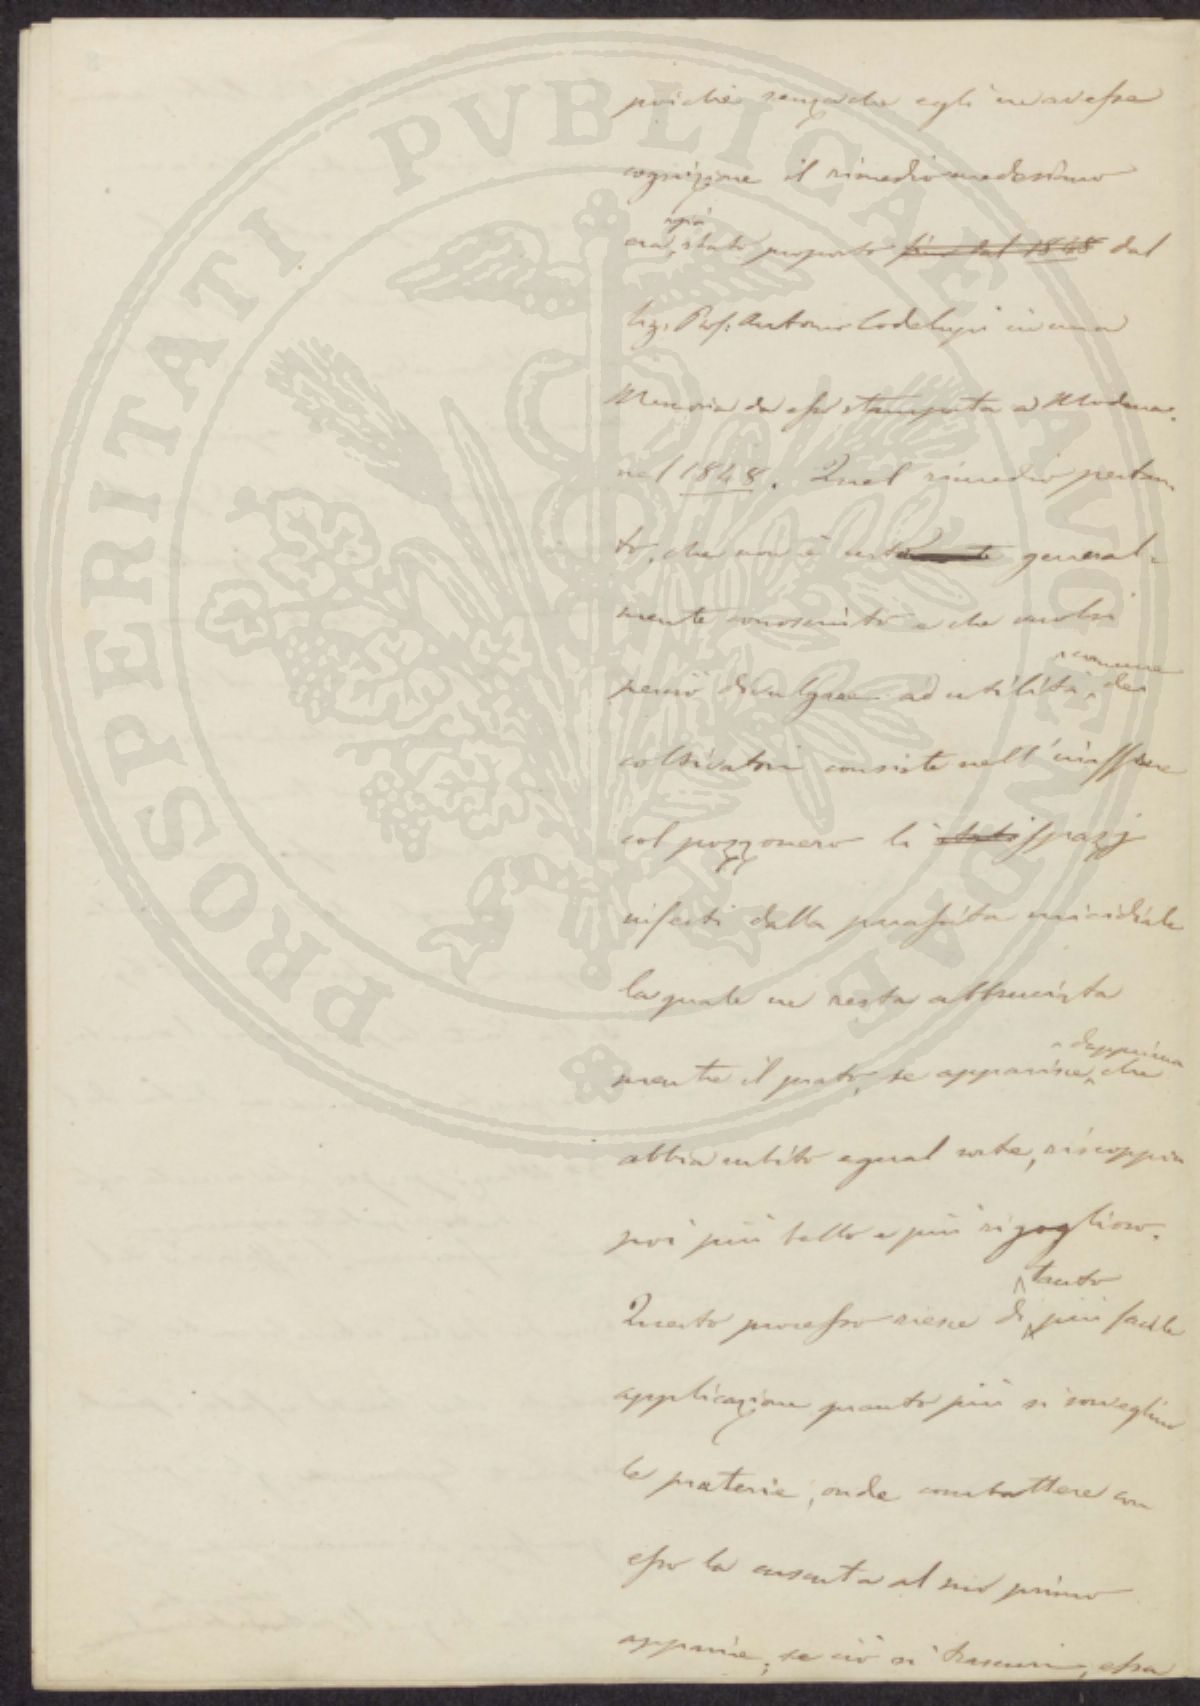 PROSPERITATI PVBLICAE AVGENDAE
poichè senza che egli ne avesse
cognizione il rimedio medesimo
già
era stato proposto fin dal 1848 dal
Sig. Prof. Antonio Codelupi in una
Memoria da esso stampata a Modena
nel 1848. Quel rimedio pertan-
to, che non è certo general-
mente conosciuto e che vuolsi
comune
perciò divulgare ad utilità dei
coltivatori consiste nell'inaffiare
col pozzonero li spazj
infesti dalla parassita micidiale
la quale ne resta abbruciata
dapprima
mentre il prato, se apparisce che
abbia subìto egual sorte, riscoppia
poi più bello e più rigoglioso.
tanto
Questo processo riesce di più facile
applicazione quanto più si sorveglino
le praterie, onde combattere con
esso la cuscuta al suo primo
apparire; se ciò si trascuri, essa